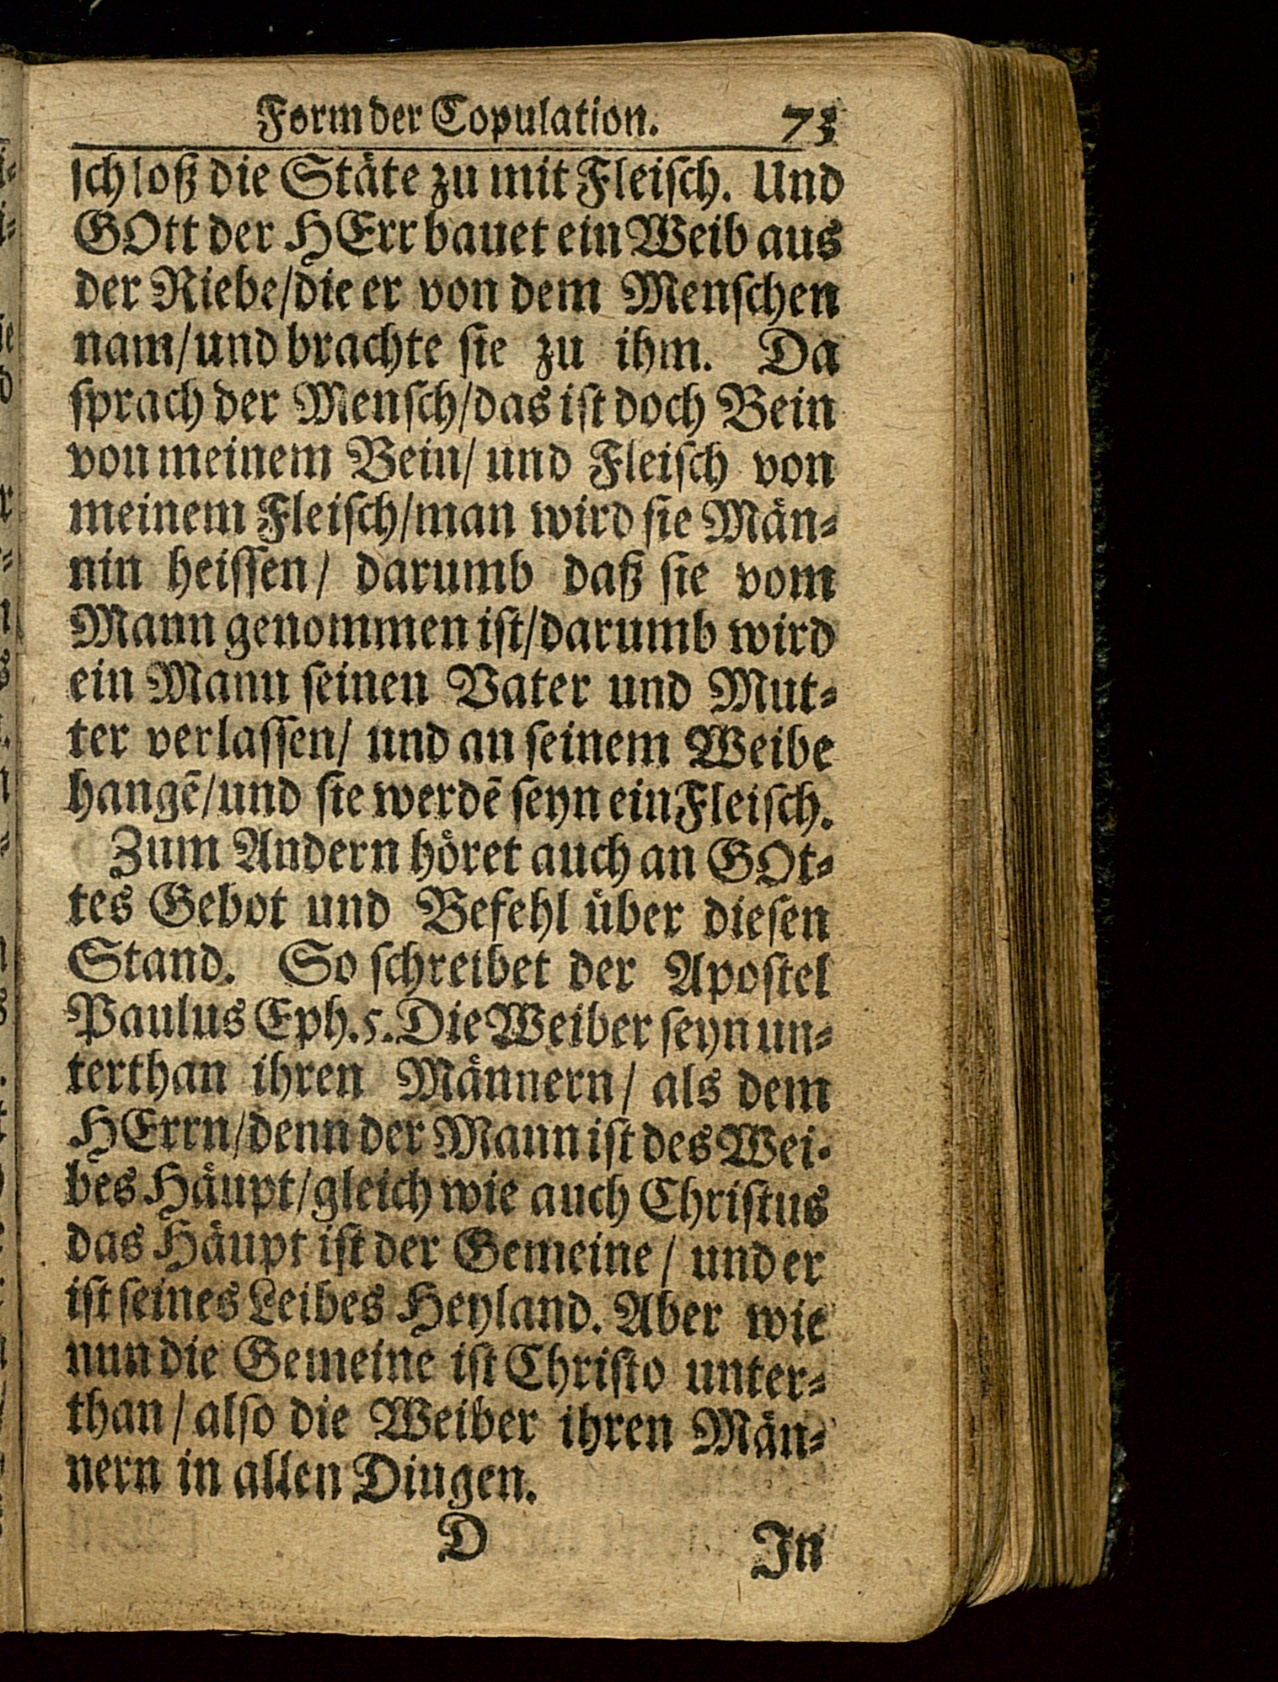 Form der Copulation. 73
schloß die Stäte zu mit Fleisch. Und
GOtt der HErr bauet ein Weib aus
der Riebe/die er von dem Menschen
nam/und brachte sie zu ihm. Da
sprach der Mensch/das ist doch Bein
von meinem Bein/ und Fleisch von
meinem Fleisch/man wird sie Män-
nin heissen/ darumb daß sie vom
Mann genommen ist/darumb wird
ein Mann seinen Vater und Mut-
ter verlassen/ und an seinem Weibe
hangẽ/und sie werdẽ seyn ein Fleisch.
Zum Andern höret auch an GOt-
tes Gebot und Befehl über diesen
Stand. So schreibet der Apostel
Paulus Eph. 5. Die Weiber seyn un-
terthan ihren Männern/ als dem
HErrn/denn der Mann ist des Wei-
bes Häupt/gleich wie auch Christus
das Häupt ist der Gemeine/ und er
ist seines Leibes Heyland. Aber wie
nun die Gemeine ist Christo unter-
than/ also die Weiber ihren Män-
nern in allen Dingen.
D In